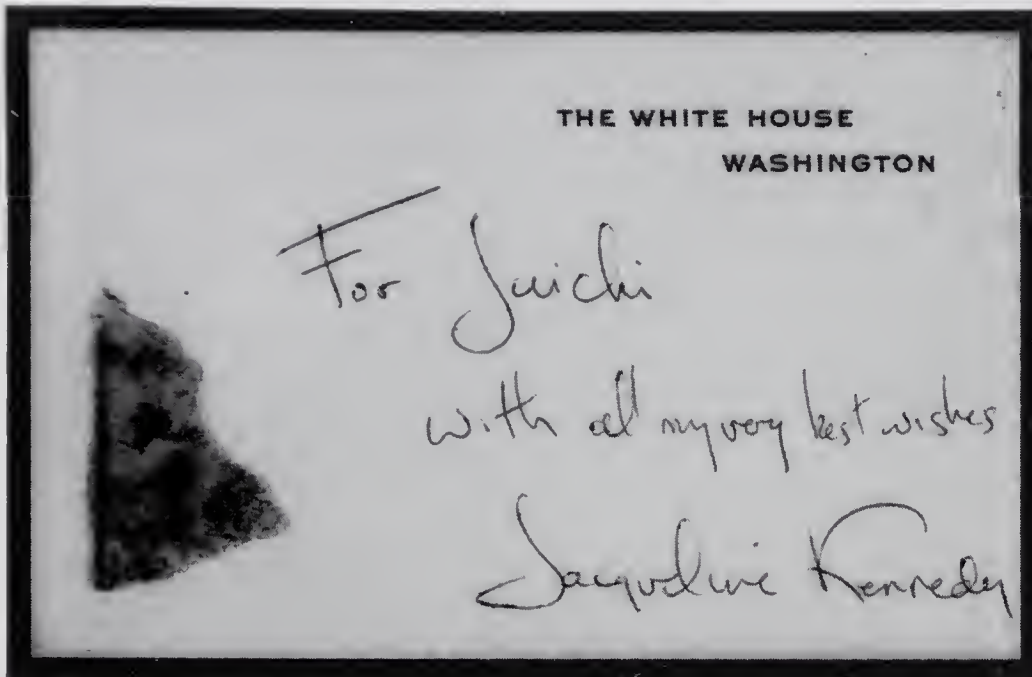 THE WHITE HOUSE
WASHINGTON
For Juichi
with all my very best wishes
Jacqueline Kennedy